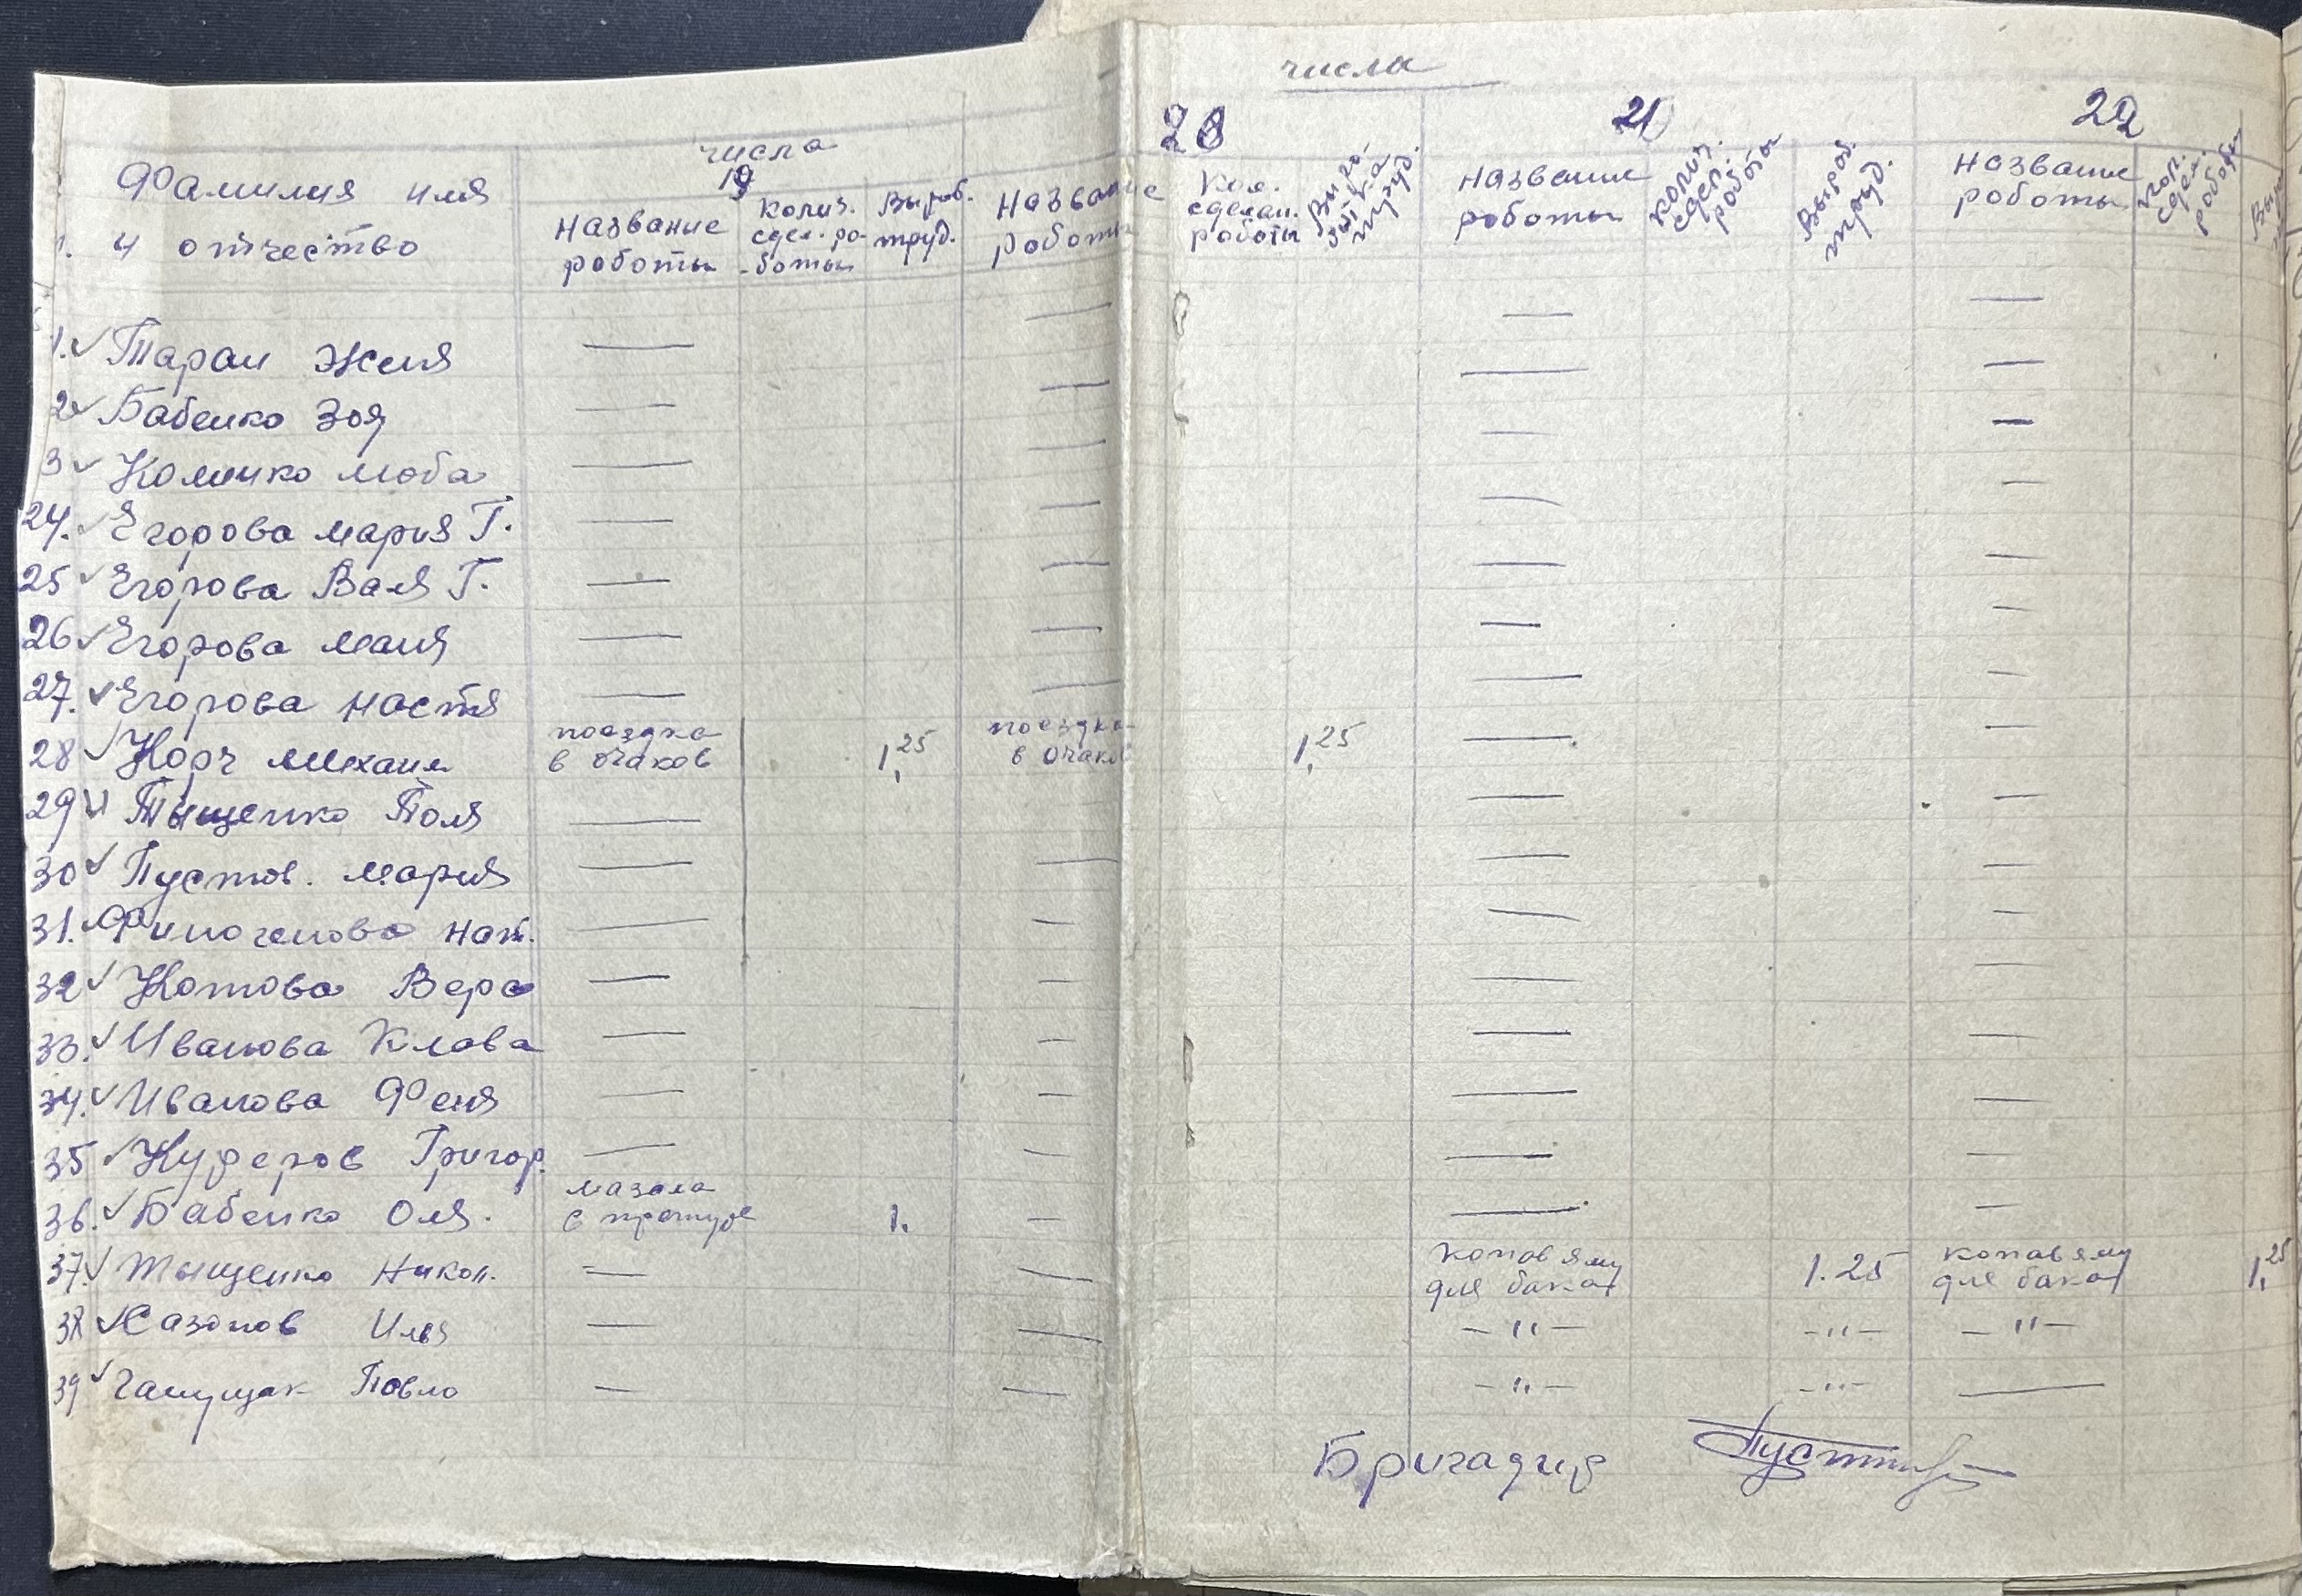 числа
числа
19
20
21
22
Фамилия имя
и отчество
Название
роботы
Колич.
сдел. ро-
-боты
Выроб.
труд.
Название
роботы
Кол.
сделан.
роботы
труд.
Название
роботы
колич.
сдел.
роботы
Выроб.
труд.
Название
роботы
кол.
сдел.
роботы
1. Таран Женя —
2 Бабенко Зоя —
3 Коменко Люба —
24. Егорова Мария Г. —
25 Егорова Валя Г. —
26 Егорова Маня —
27. Егорова Настя —
28 Корч Михаил поездка в Очаков 1,25 поездка в Очаков 1,25 — —
29 Тыщенко Поля —
30 Пустов. Мария —
31. Финогенова Нат. —
32 Котова Вера —
33. Иванова Клава —
34. Иванова Феня —
35 Кучеров Григор. —
36. Бабенко Оля. мазала 1. — — —
37. Тыщенко Никол. — — копав яму для бака 1.25 копав яму для бака 1,25
38 Сазонов Илья — — -"- -"- -"-
39 Ганущак Павло — — -"- -"- —
Бригадир Пустов